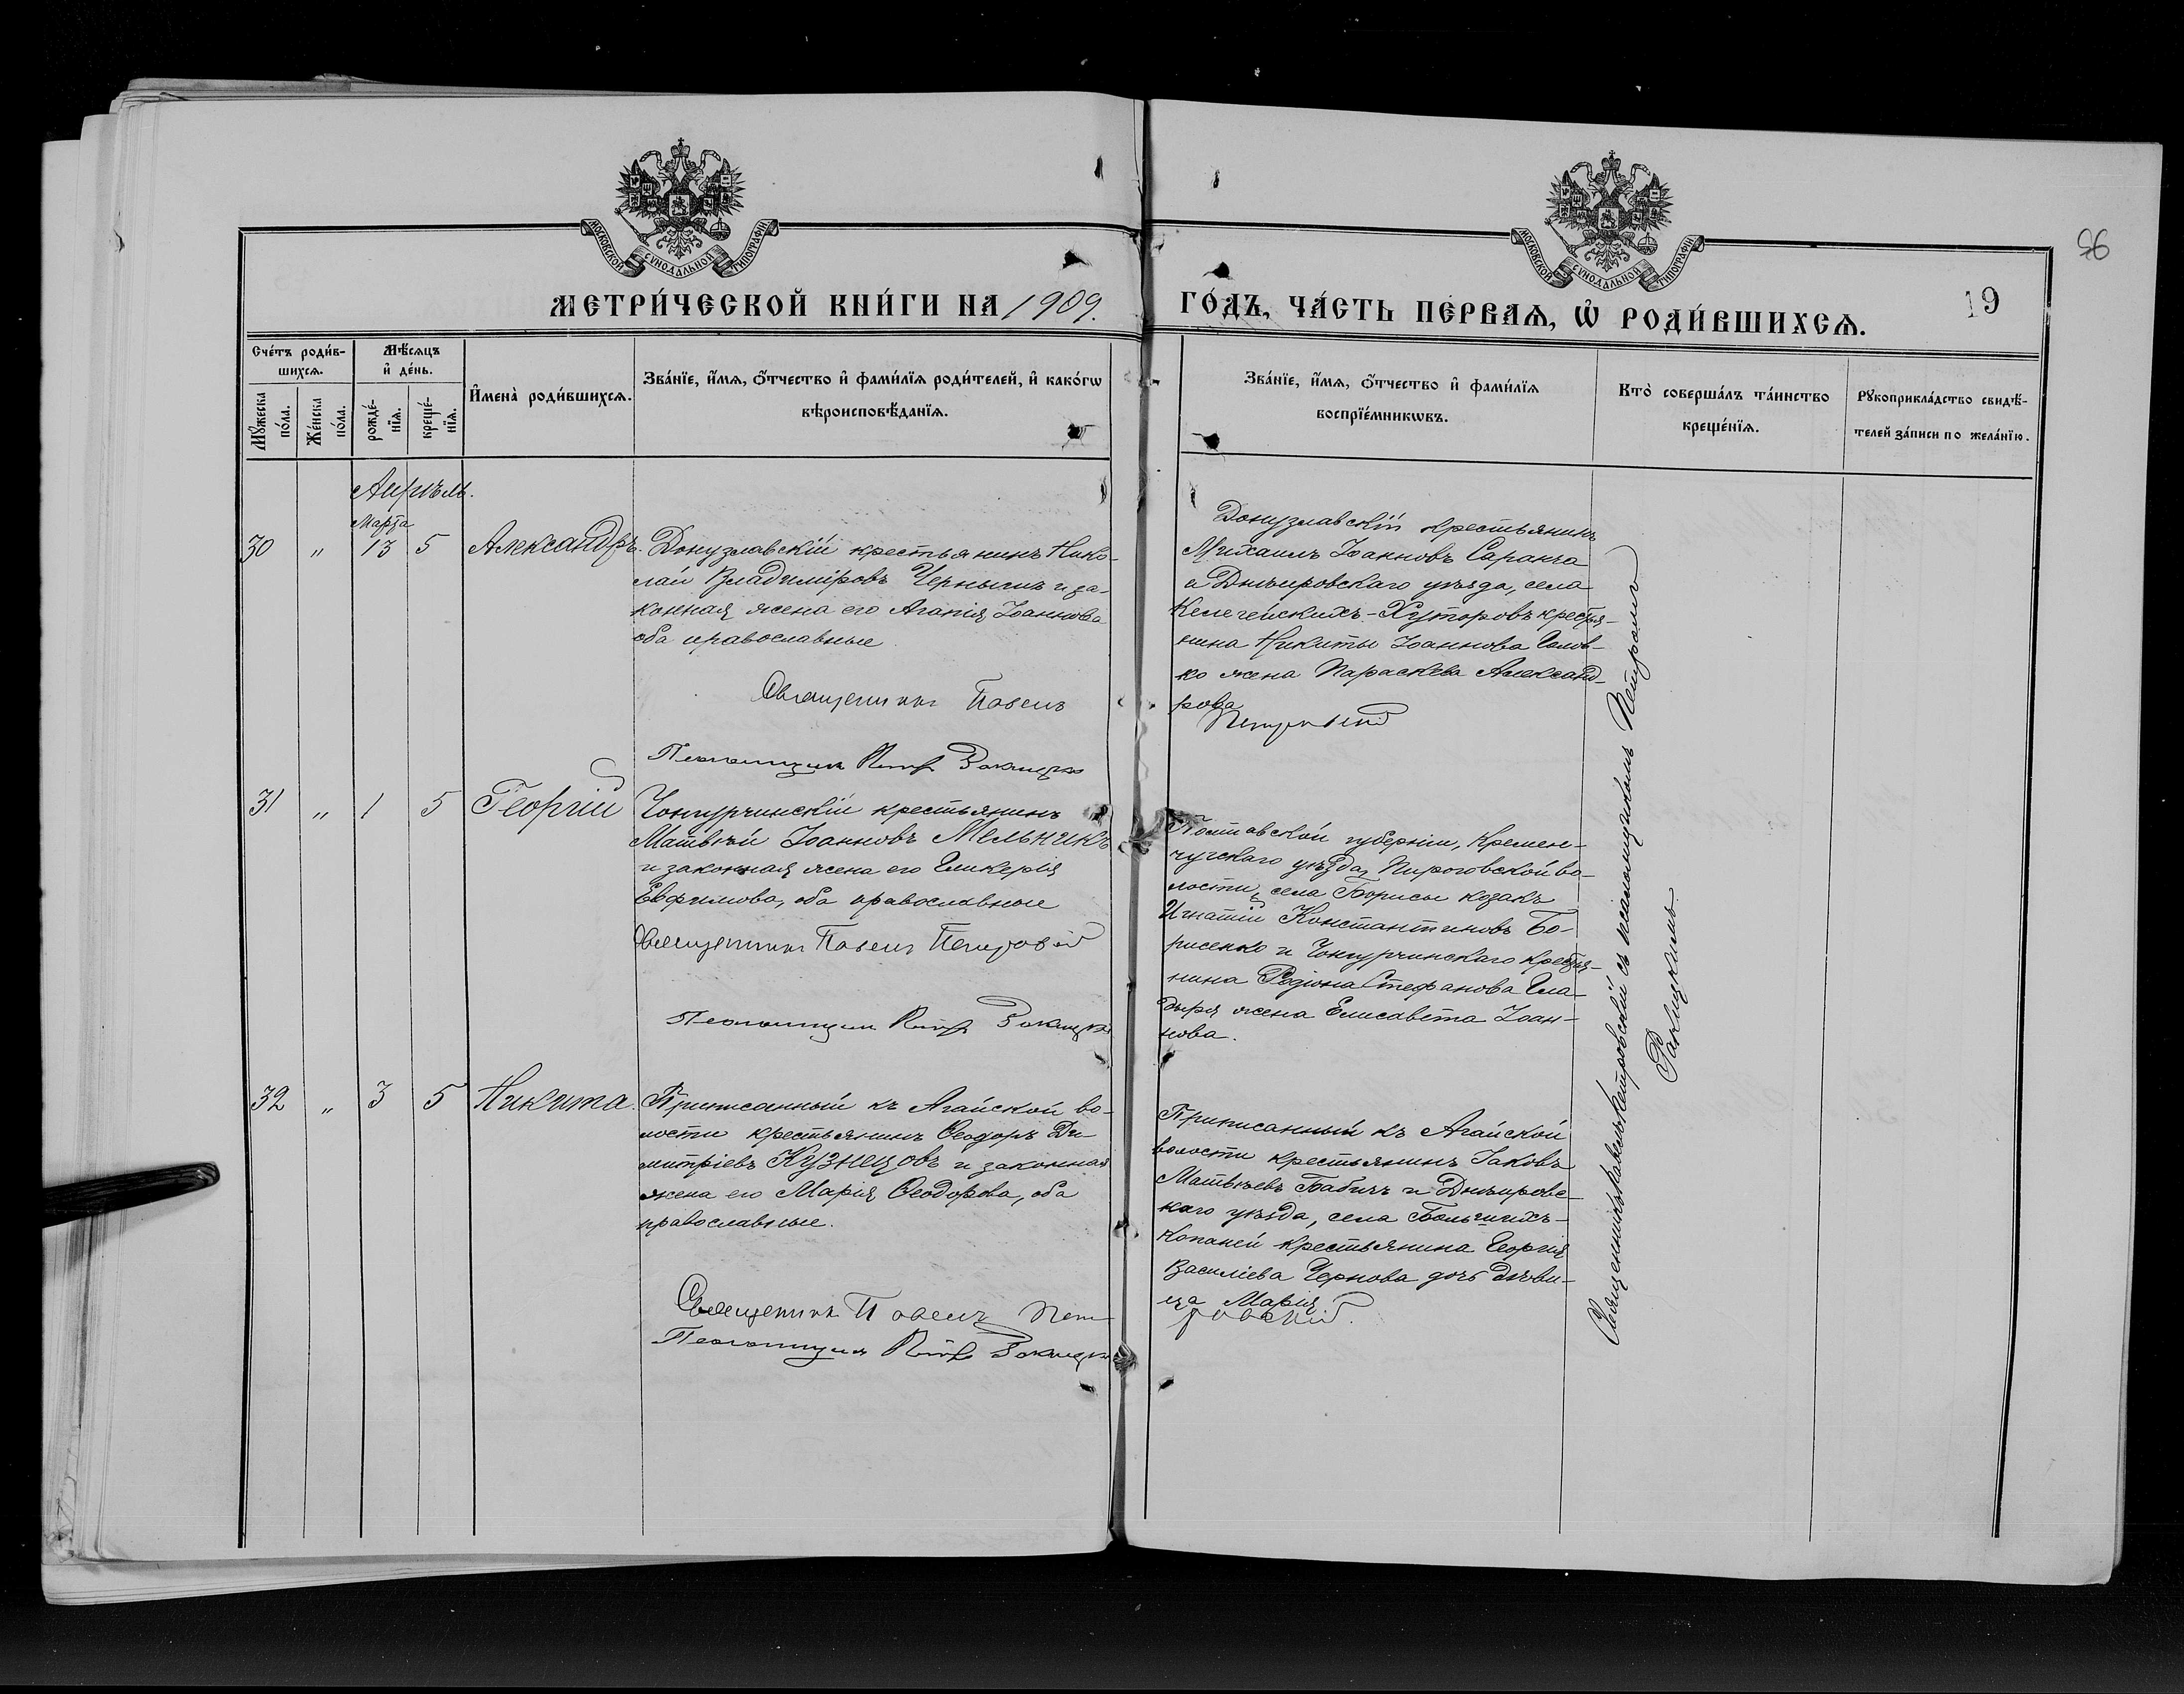 96
МОСКОВСКОЙ СѴНОДАЛЬНОЙ ТИПОГРАФІИ
МОСКОВСКОЙ СѴНОДАЛЬНОЙ ТИПОГРАФІИ
МЕТРИ́ЧЕСКОЙ КНИ́ГИ НА 1909.
ГО́ДЪ, ЧА́СТЬ ПЕ́РВАѦ, Ѡ҆ РОДИ́ВШИХСѦ.
19
Сче́тъ роди́в-
шихсѧ.
Мꙋ́жеска
по́ла.
Же́нска
по́ла.
Мѣ́сѧцъ
и҆ де́нь.
рожде́-
нїѧ.
креще́-
нїѧ.
И҆мена̀ роди́вшихсѧ.
Зва́нїе, и҆́мѧ, ѻ҆́тчество и҆ фами́лїѧ роди́телей, и҆ како́гѡ
вѣроисповѣ́данїѧ.
Зва́нїе, и҆́мѧ, ѻ҆́тчество и҆ фами́лїѧ
воспрїе́мникѡвъ.
Кто̀ соверша́лъ та́инство
креще́нїѧ.
Рꙋкоприкла́дство свидѣ́-
телей за́писи по жела́нїю.
Апрѣль.
Марта
30 " 13 5 Александръ.
Донузлавскій крестьянинъ Нико-
лай Владиміровъ Чернышъ и за-
конная жена его Агапія Іоаннова
оба православные
Священникъ Павелъ
Петровскій
Псаломщикъ Петръ Ракицкій
Донузлавскій крестьянинъ
Михаилъ Іоанновъ Саранча
и Днѣпровскаго уѣзда, села
Келегейскихъ-Хуторовъ крестья-
нина Никиты Іоаннова Голов-
ко жена Параскева Александ-
рова
31 " 1 5 Георгій
Чонгурчинскій крестьянинъ
Матвѣй Іоанновъ Мельникъ
и законная жена его Гликерія
Евфимова, оба православные
Священникъ Павелъ Петровскій
Псаломщикъ Петръ Ракицкій
Полтавской губерніи, Кремен-
чугскаго уѣзда, Пироговской во-
лости, села Борисы козакъ
Игнатій Константиновъ Бо-
рисенко и Чонгурчинскаго крестья-
нина Родіона Стефанова Гла-
дыря жена Елисавета Іоан-
нова.
32 " 3 5 Никита.
Приписанный къ Агайской во-
лости крестьянинъ Ѳеодоръ Ди-
митріевъ Кузнецовъ и законная
жена его Марія Ѳеодорова, оба
православные.
Священникъ Павелъ Пет-
ровскій.
Псаломщикъ Петръ Ракицкій
Приписанный къ Агайской
волости крестьянинъ Іаковъ
Матвѣевъ Бабичъ и Днѣпровс-
каго уѣзда, села Большихъ-
Копаней крестьянина Георгія
Василіева Чернова дочь дѣви-
ца Марія
Священникъ Павелъ Петровскій съ псаломщикомъ Петромъ
Ракицкимъ.